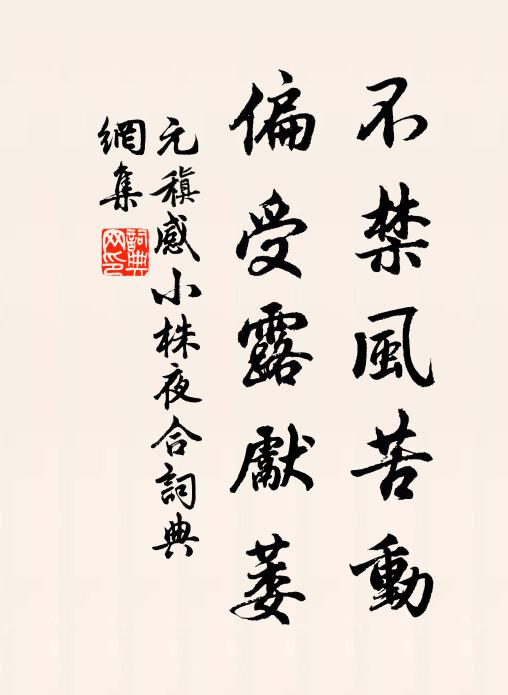 不禁風苦動
偏受露獻萋
元稹感小株夜合詞典
網集
詞典網印